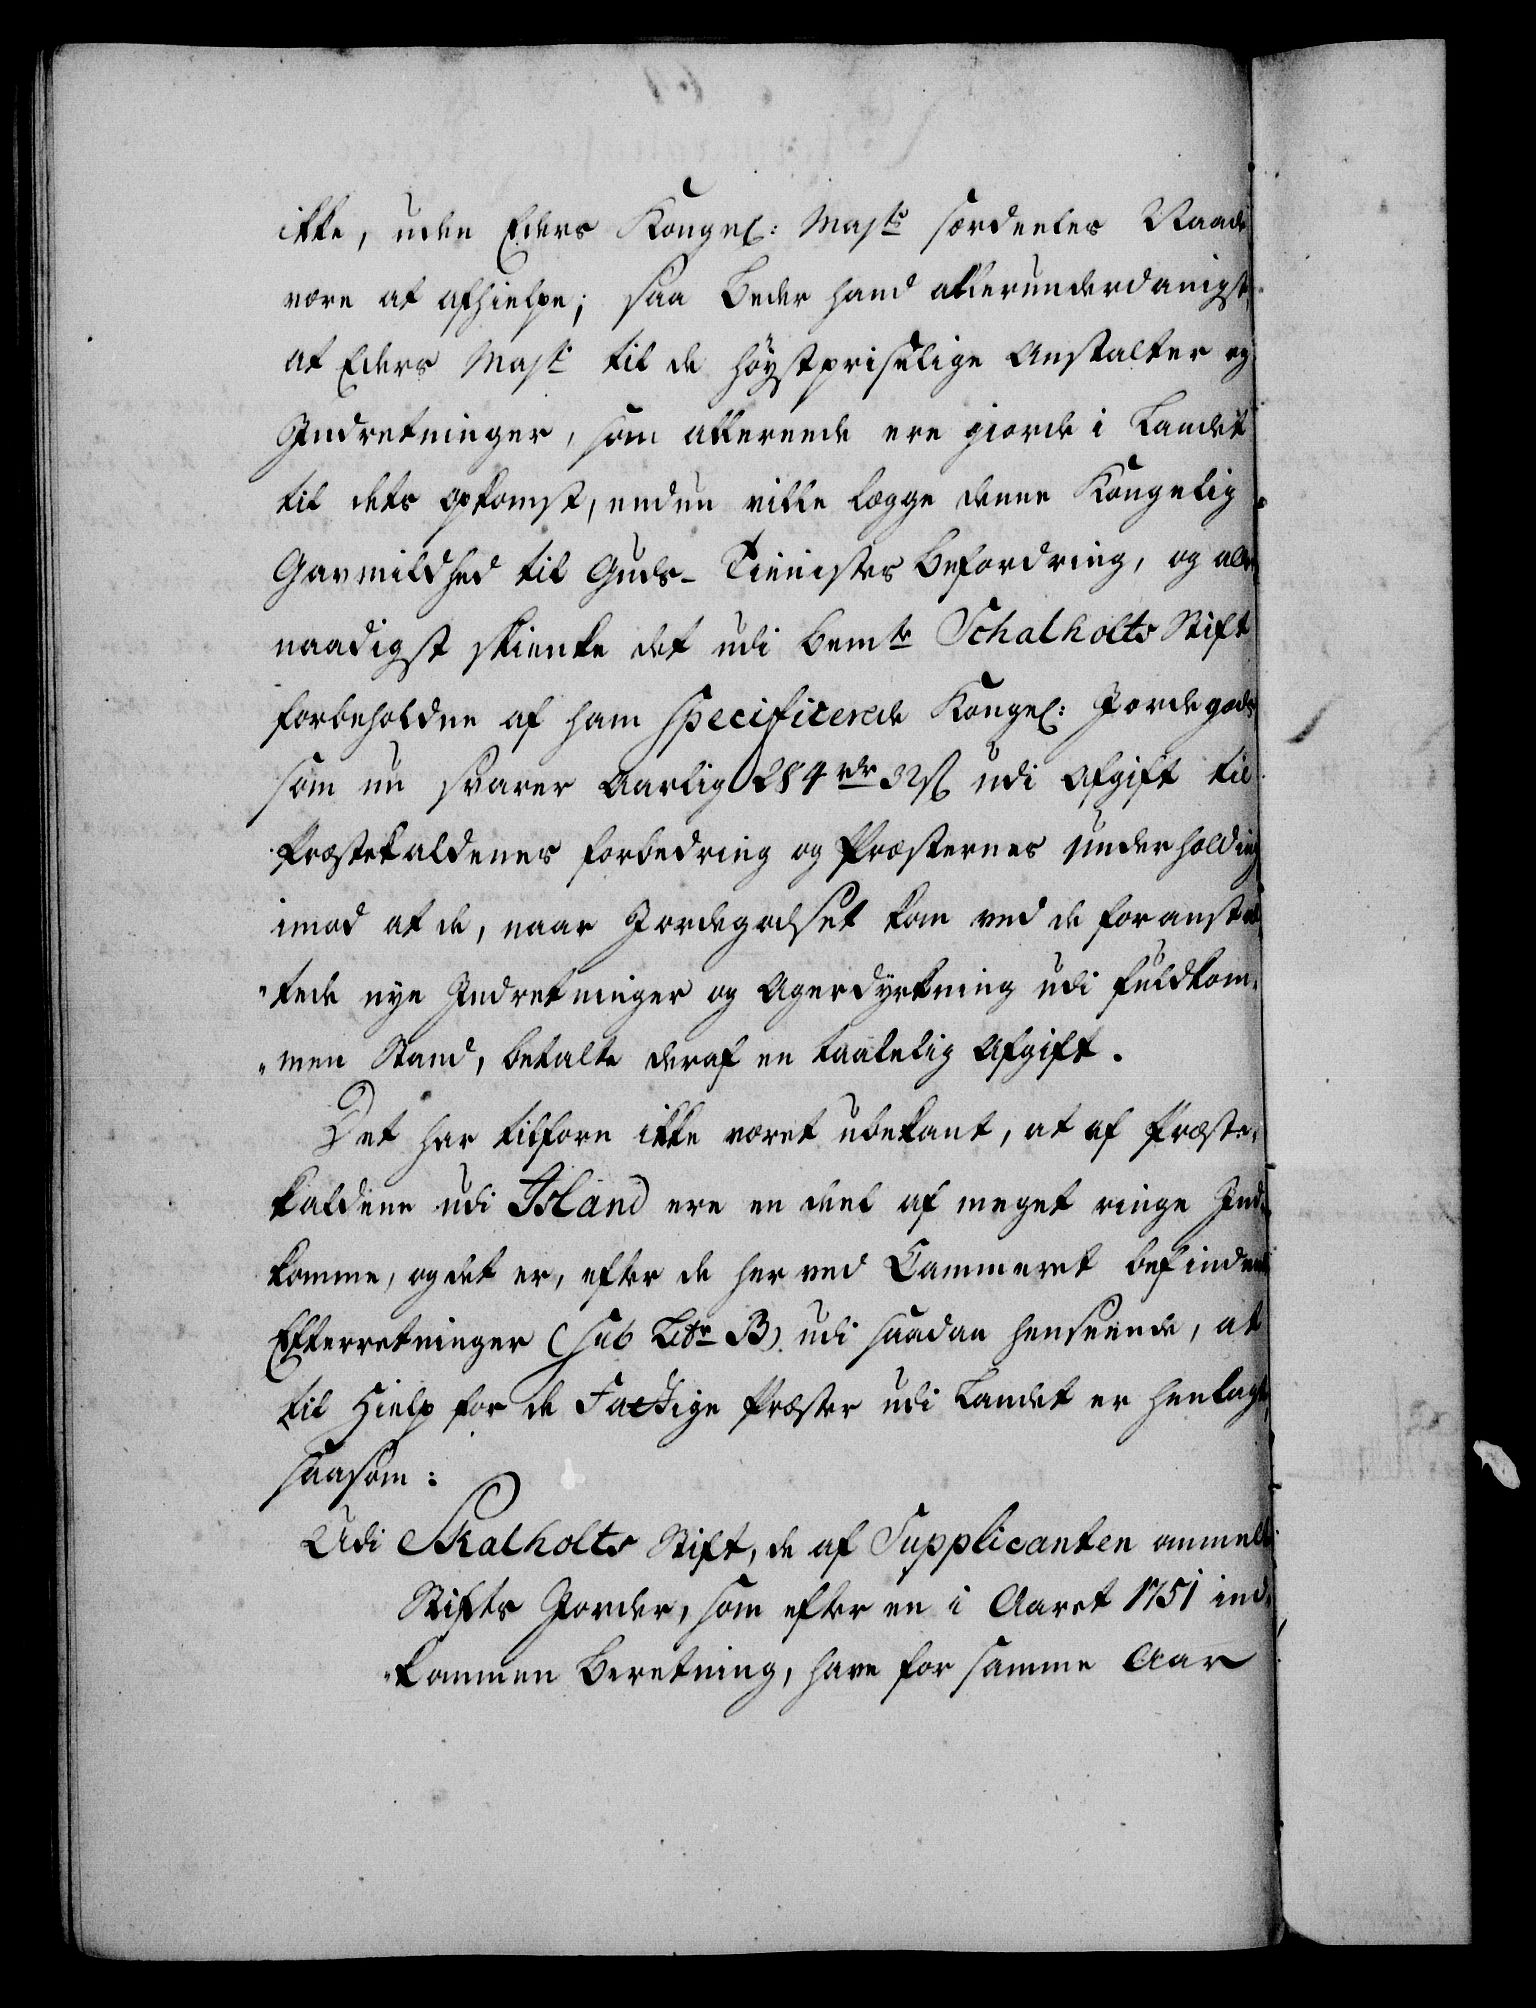 ikke, uden Eders Kongel: Majts særdeeles Naade
være at afhielpe; saa beder hand allerunderdanigst,
at Eders Majt til de høystpriselige Anstalter og
Indretninger, som allerede ere giorde i Landet
til dets opkomst, endnu ville lægge denne Kongelig
Gavmildhed til Guds-Tienistes Befordring, og aller
naadigst skienke det udi bemte Schalholts Stift
forbeholdne af ham specificerede Kongel: Jordegods
som nu svarer Aarlig 284 rdr 32 s udi Afgift til
Præstekaldenes forbedring og Præsternes Underholding
imod at de, naar Jordegodset kom ved de foranstal
tede nye Indretninger og Agerdyrkning udi fuldkom-
men Stand, betalte deraf en taalelig Afgift.
Det har tilforn ikke været ubekant, at af Præste-
kaldene udi Island ere en deel af meget ringe Ind-
komme, og det er, efter de her ved Cammeret befindende
Efterretninger (sub Litr B) udi saadan henseende, at
til Hielp for de Fattige Præster udi Landet er henlagt,
saasom:
Udi Skalholts Stift, de af Supplicanten anmeldte
Stifts Jorder, som efter en i Aaret 1751 ind-
kommen Beretning, have for samme Aar